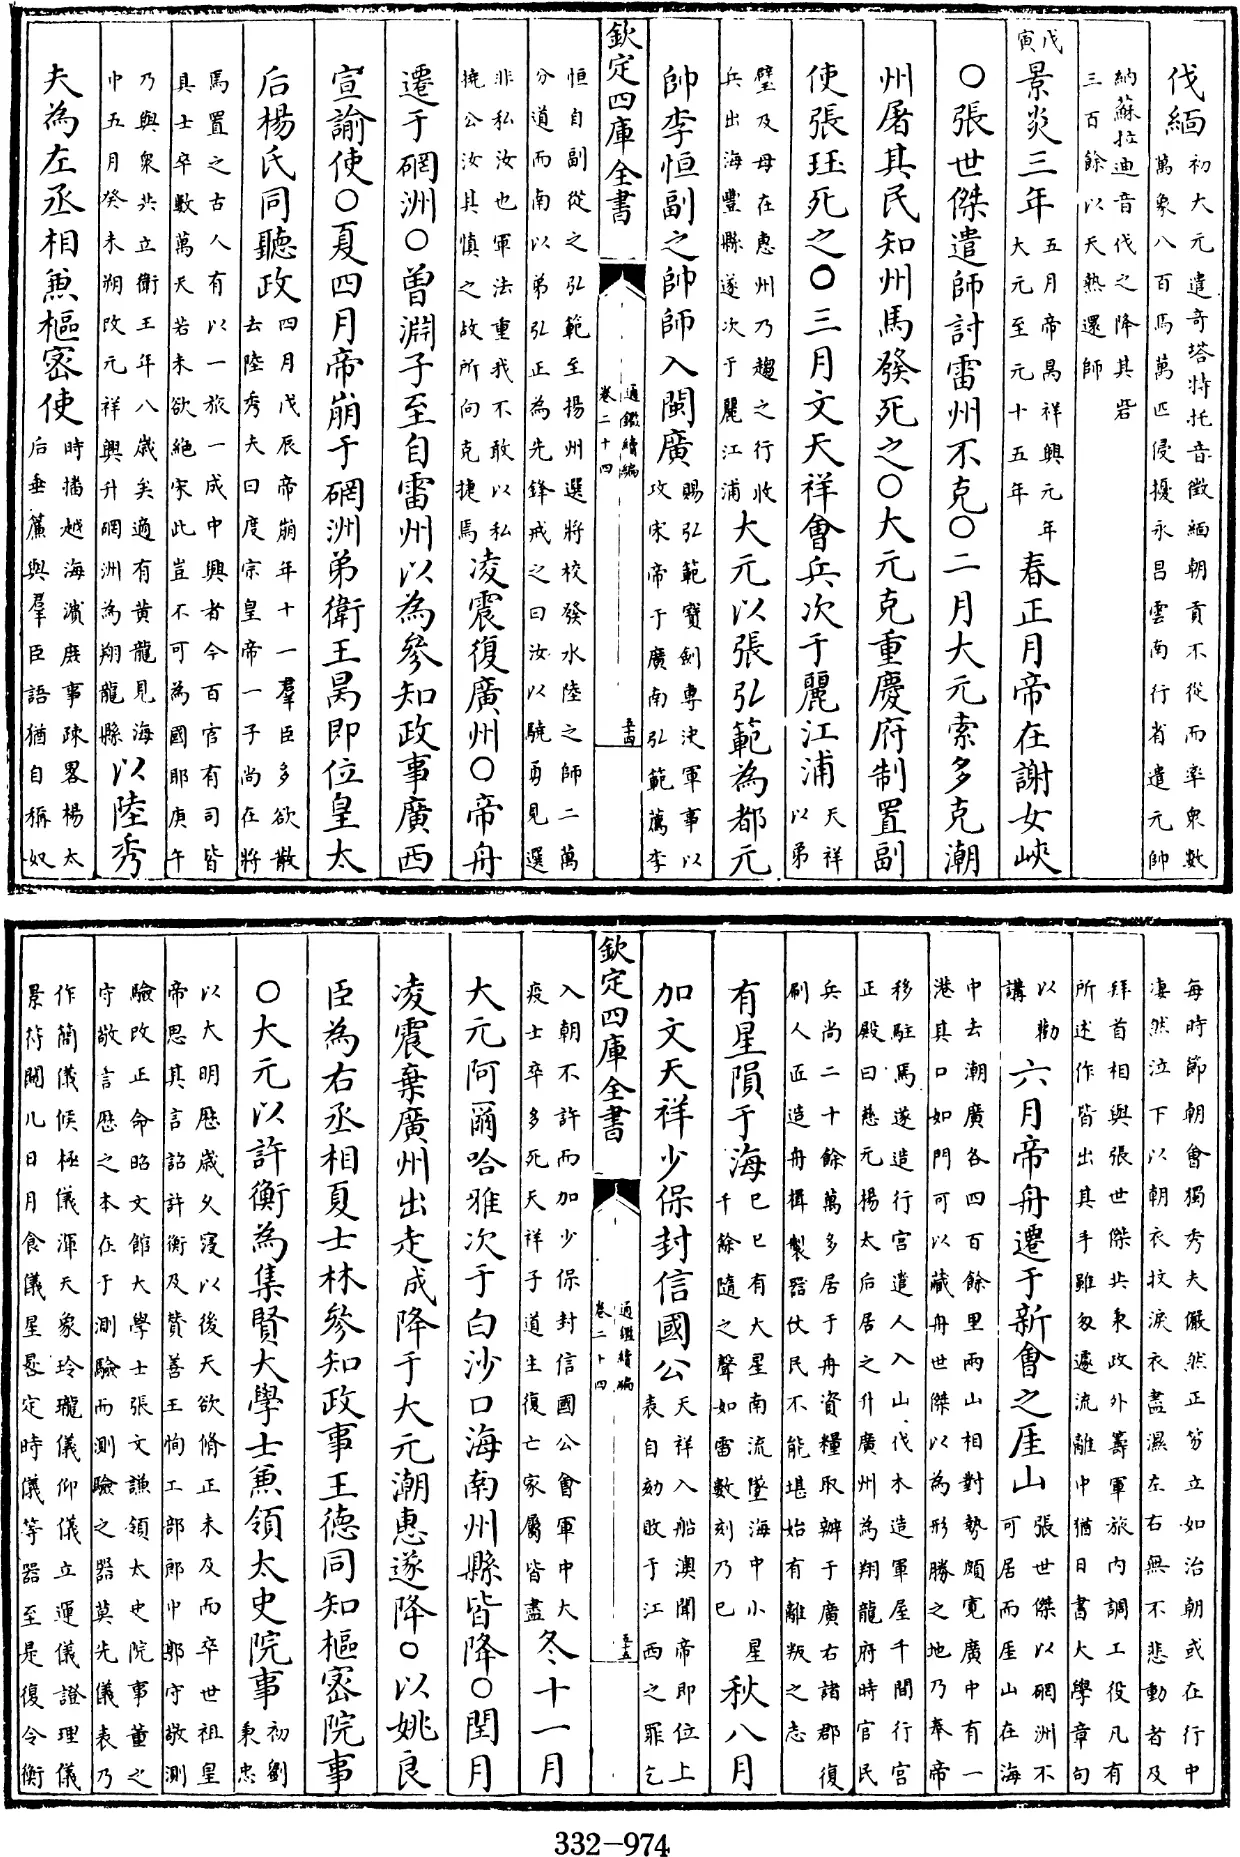 伐緬初大元遣竒塔特托音徵緬朝貢不從而率衆數
萬象八百馬萬匹侵擾永昌雲南行省遣元帥
納蘇拉迪音伐之降其砦
三百餘以天熱還師
戊寅景炎三年五月帝昺祥興元年大元至元十五年春正月帝在謝女峽
○張世傑遣師討雷州不克○二月大元索多克潮
州屠其民知州馬發死之○大元克重慶府制置副
使張珏死之○三月文天祥會兵次于麗江浦天祥以弟
璧及母在惠州乃趨之行收兵出海豐縣遂次于麗江浦大元以張弘範為都元
帥李恒副之帥師入閩廣賜弘範寳劍專决軍事以
攻宋帝于廣南弘範薦李
欽定四庫全書
通鑑續編
卷二十四
五十四
恒自副從之弘範至揚州選將校發水陸之師二萬
分道而南以弟弘正為先鋒戒之曰汝以驍勇見選
非私汝也軍法重我不敢以私撓公汝其慎之故所向克捷焉凌震復廣州○帝舟
遷于碙洲○曾淵子至自雷州以為參知政事廣西
宣諭使○夏四月帝崩于碙洲弟衛王昺即位皇太
后楊氏同聽政四月戊辰帝崩年十一羣臣多欲散
去陸秀夫曰度宗皇帝一子尚在將
馬置之古人有以一旅一成中興者今百官有司皆
具士卒數萬天若未欲絶宋此豈不可為國耶庚午
乃與衆共立衛王年八歳矣適有黄龍見海中五月癸未朔改元祥興升碙洲為翔龍縣以陸秀
夫為左丞相兼樞密使時播越海濱庶事疎畧楊太
后垂簾與羣臣語猶自稱奴
每時節朝會獨秀夫儼然正笏立如治朝或在行中
凄然泣下以朝衣抆淚衣盡濕左右無不悲動者及
拜首相與張世傑共秉政外籌軍旅内調工役凡有
所述作皆出其手雖匆遽流離中猶日書大學章句
以勸講六月帝舟遷于新會之厓山張世傑以碙洲不
可居而厓山在海
中去潮廣各四百餘里兩山相對勢頗寛廣中有一
港其口如門可以藏舟世傑以為形勝之地乃奉帝
移駐焉遂造行宫遣人入山伐木造軍屋千間行宫
正殿曰慈元楊太后居之升廣州為翔龍府時官民
兵尚二十餘萬多居于舟資糧取辦于廣右諸郡復
刷人匠造舟楫製器仗民不能堪始有離叛之志
有星隕于海己巳有大星南流墜海中小星千餘隨之聲如雷數刻乃已秋八月
加文天祥少保封信國公天祥入船澳聞帝即位上
表自劾敗于江西之罪乞
欽定四庫全書
通鑑續編
卷二十四
五十五
入朝不許而加少保封信國公會軍中大疫士卒多死天祥子道生復亡家屬皆盡冬十一月
大元阿爾哈雅次于白沙口海南州縣皆降○閏月
凌震棄廣州出走成降于大元潮惠遂降○以姚良
臣為右丞相夏士林參知政事王德同知樞密院事
○大元以許衡為集賢大學士兼領太史院事初劉秉忠
以大明厯歳久寖以後天欲脩正未及而卒世祖皇
帝思其言詔許衡及贊善王恂工部郎中郭守敬測
驗改正命昭文館大學士張文謙領太史院事董之
守敬言厯之本在于測驗而測驗之器莫先儀表乃
作簡儀候極儀渾天象玲瓏儀仰儀立運儀證理儀
景符闚几日月食儀星晷定時儀等器至是復令衡
332-974